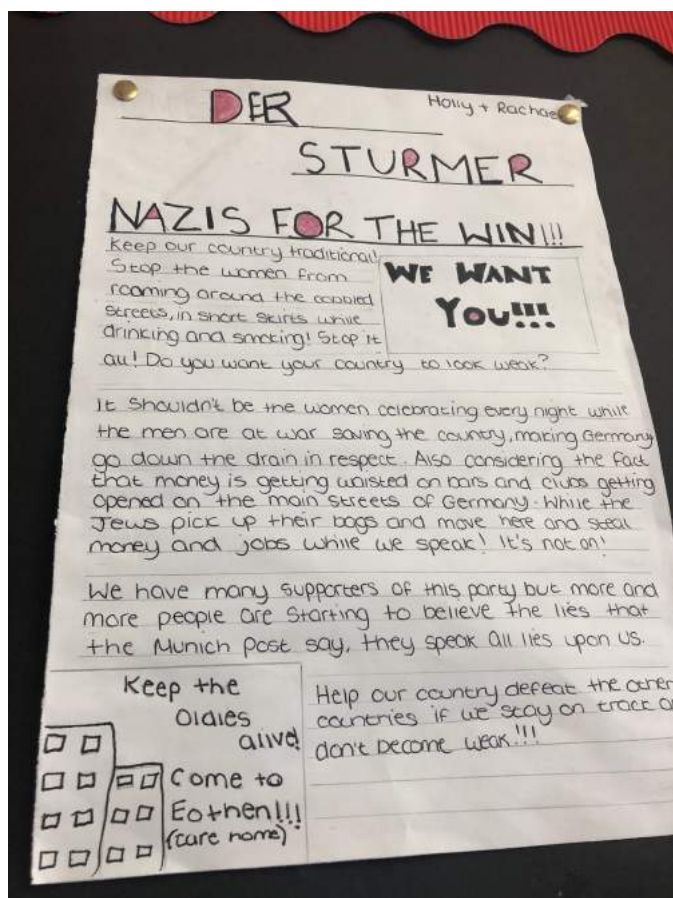 DER
Holly + Rachae
STURMER
NAZIS FOR THE WIN!!!
Keep our country traditional!
Stop the women from
roaming around the cobbled
streets, in short skirts while
drinking and smoking! Stop it
all! Do you want your country to look weak?
WE WANT
You!!!
It shouldn't be the women celebrating every night while
the men are at war saving the country, making Germany
go down the drain in respect. Also considering the fact
that money is getting waisted on bars and clubs getting
opened on the main streets of Germany. While the
Jews pick up their bags and move here and steal
money and jobs while we speak! It's not on!
We have many supporters of this party but more and
more people are starting to believe the lies that
the Munich Post say, they speak all lies upon us.
Keep the
Oldies
alive!
Come to
Eothen!!!
(care home)
Help our country defeat the other
countries if we stay on track a
don't become weak!!!